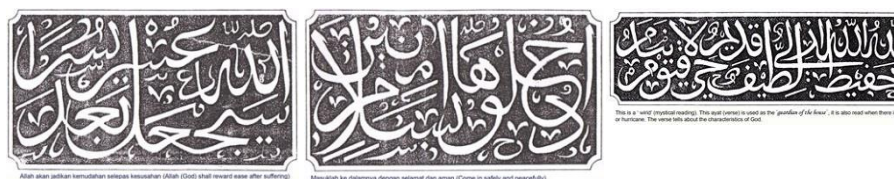 سيجعل الله بعد عسر يسرا
Allah akan jadikan kemudahan selepas kesusahan (Allah (God) shall reward ease after suffering)
ادخلوها بسلام امنين
Masuklah ke dalamnya dengan selamat dan aman (Come in safely and peacefully)
الله لا ينام
حفيظ لطيف حي قيوم
This is a 'wirid' (mystical reading). This ayat (verse) is used as the 'guardian of the house', it is also read when there is
or hurricane. The verse tells about the characteristics of God.